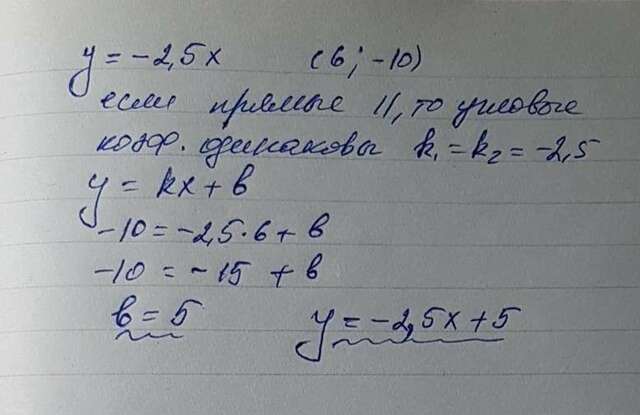 y = -2,5x (6; -10)
если прямые ||, то угловые
коэф. одинаковы k₁ = k₂ = -2,5
y = kx + b
-10 = -2,5·6 + b
-10 = -15 + b
b = 5 y = -2,5x + 5